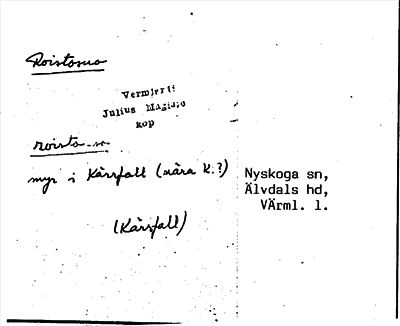 Roistosuo
Verml. efter
Julius Mägiste
kop
roisto-suo
myr i Kärrfall (nära K.?)
(Kärrfall)
Nyskoga sn,
Älvdals hd,
VÄrml. l.